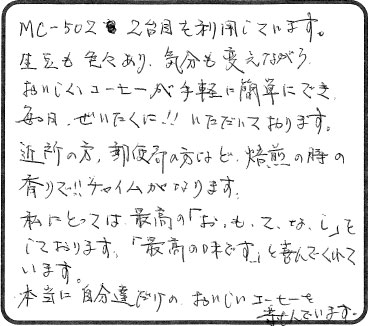 MC-502 2台目を利用しています。
生豆も色々あり、気分も変えながら
おいしいコーヒーが手軽に簡単にでき
毎日、ぜいたくに!!いただいております。
近所の方、郵便局の方など、焙煎の時の
香りで!!チャイムがなります。
私にとっては最高の「お、も、て、な、し」を
しております。「最高の味です」と喜んでくれて
います。
本当に自分達だけの、おいしいコーヒーを
楽しんでいます。